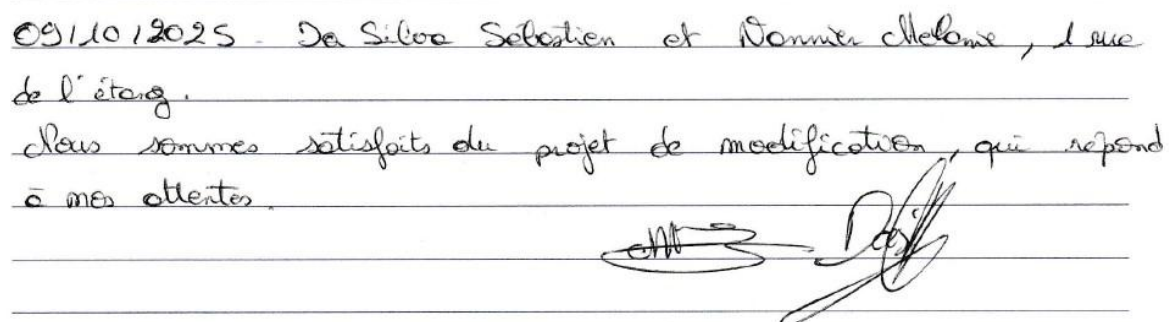 09/10/2025. Da Silva Sébastien et Vonnier Melanie, 1 rue
de l'étang.
Nous sommes satisfaits du projet de modification, qui répond
à nos attentes.